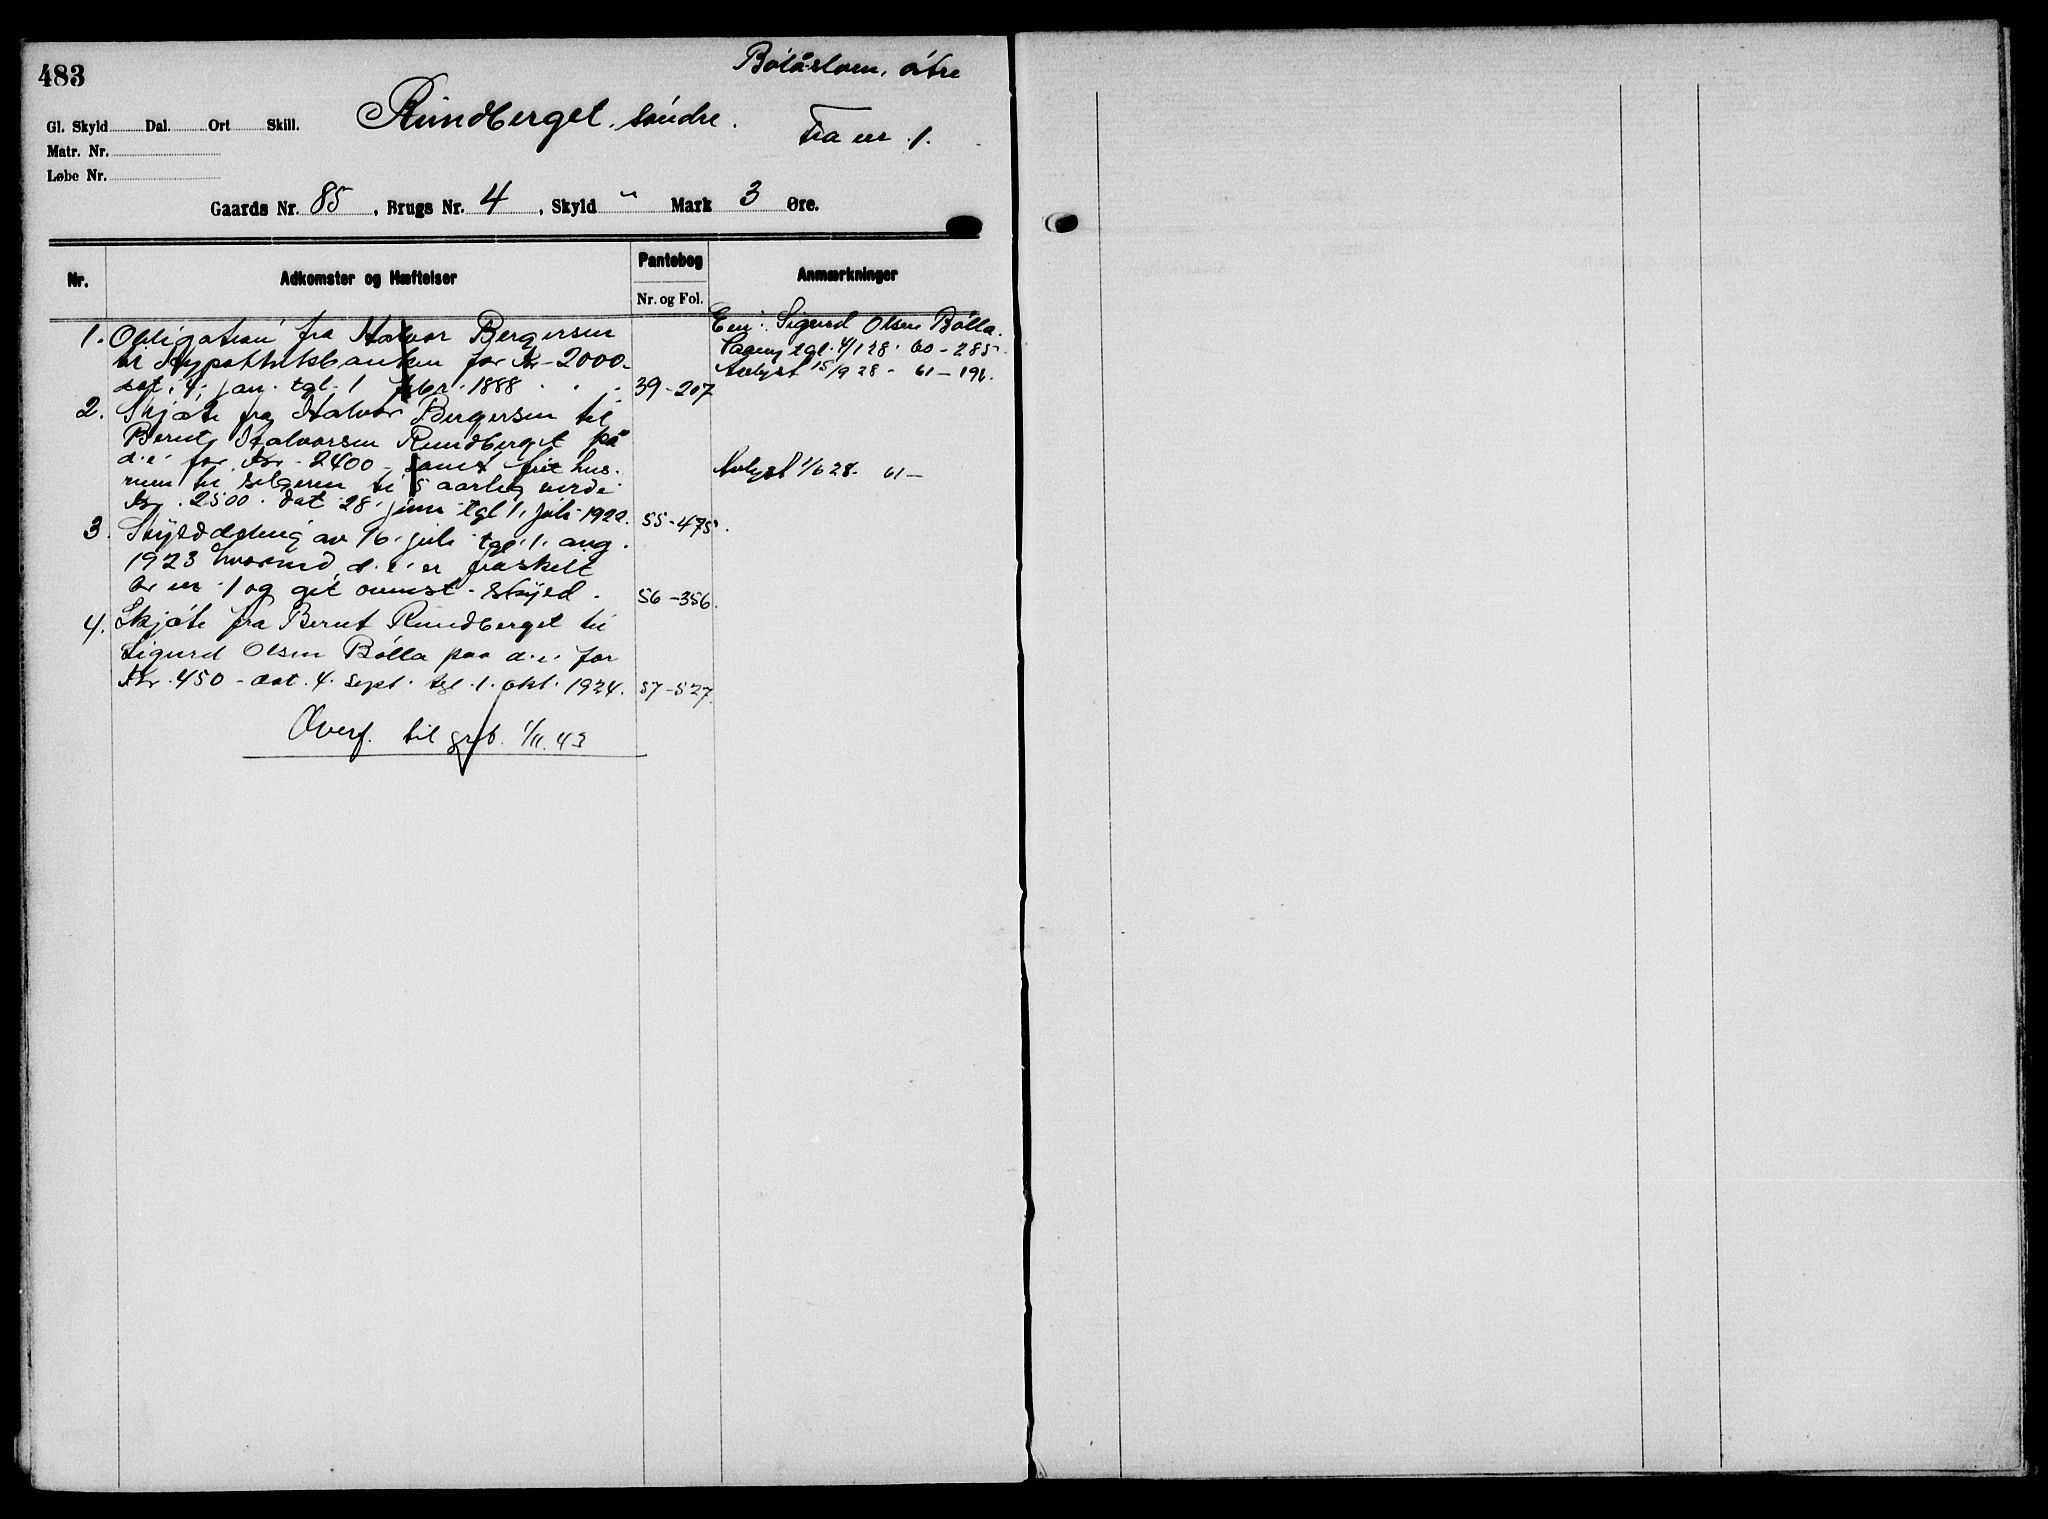 483
Bölåsloen, östre
Rundberget, söndre.
Fra nr. 1.
Gl. Skyld Dal. Ort Skill.
Matr. Nr.
Løbe Nr.
Gaards Nr. 85, Brugs Nr. 4, Skyld " Mark 3 Øre.
Nr. Adkomster og Hæftelser Pantebog Nr. og Fol. Anmærkninger
1. Obligation fra Halvor Bergersen
til Hypothekbanken for Kr. 2000.
dat. 4. jan. tgl. 1 febr. 1888 39-207
Em: Sigurd Olsen Bölla.
tgl. 4/1 28. 60-285.
Avlyst 15/9 28 - 61-196.
2. Skjöte fra Halvor Bergersen til
Bernt Halvorsen Rundberget på
d.e. for Kr. 2400 - samt frit hus-
rum til selgeren til 5 aarlig verdi
Kr. 2500. dat 28. juni tgl 1. juli 1920. 55-475.
Avlyst 1/6 28. 61-
3. Skylddeling av 16. juli tgl. 1. aug.
1923 hvorved d.e. er fraskilt
br nr. 1 og git ovennst. skyld. 56-356.
4. Skjöte fra Bernt Rundberget til
Sigurd Olsen Bölla paa d.e. for
Kr. 450 - dat. 4. sept. tgl. 1. okt. 1924. 57-527.
Overf. til grb. 1/11. 43